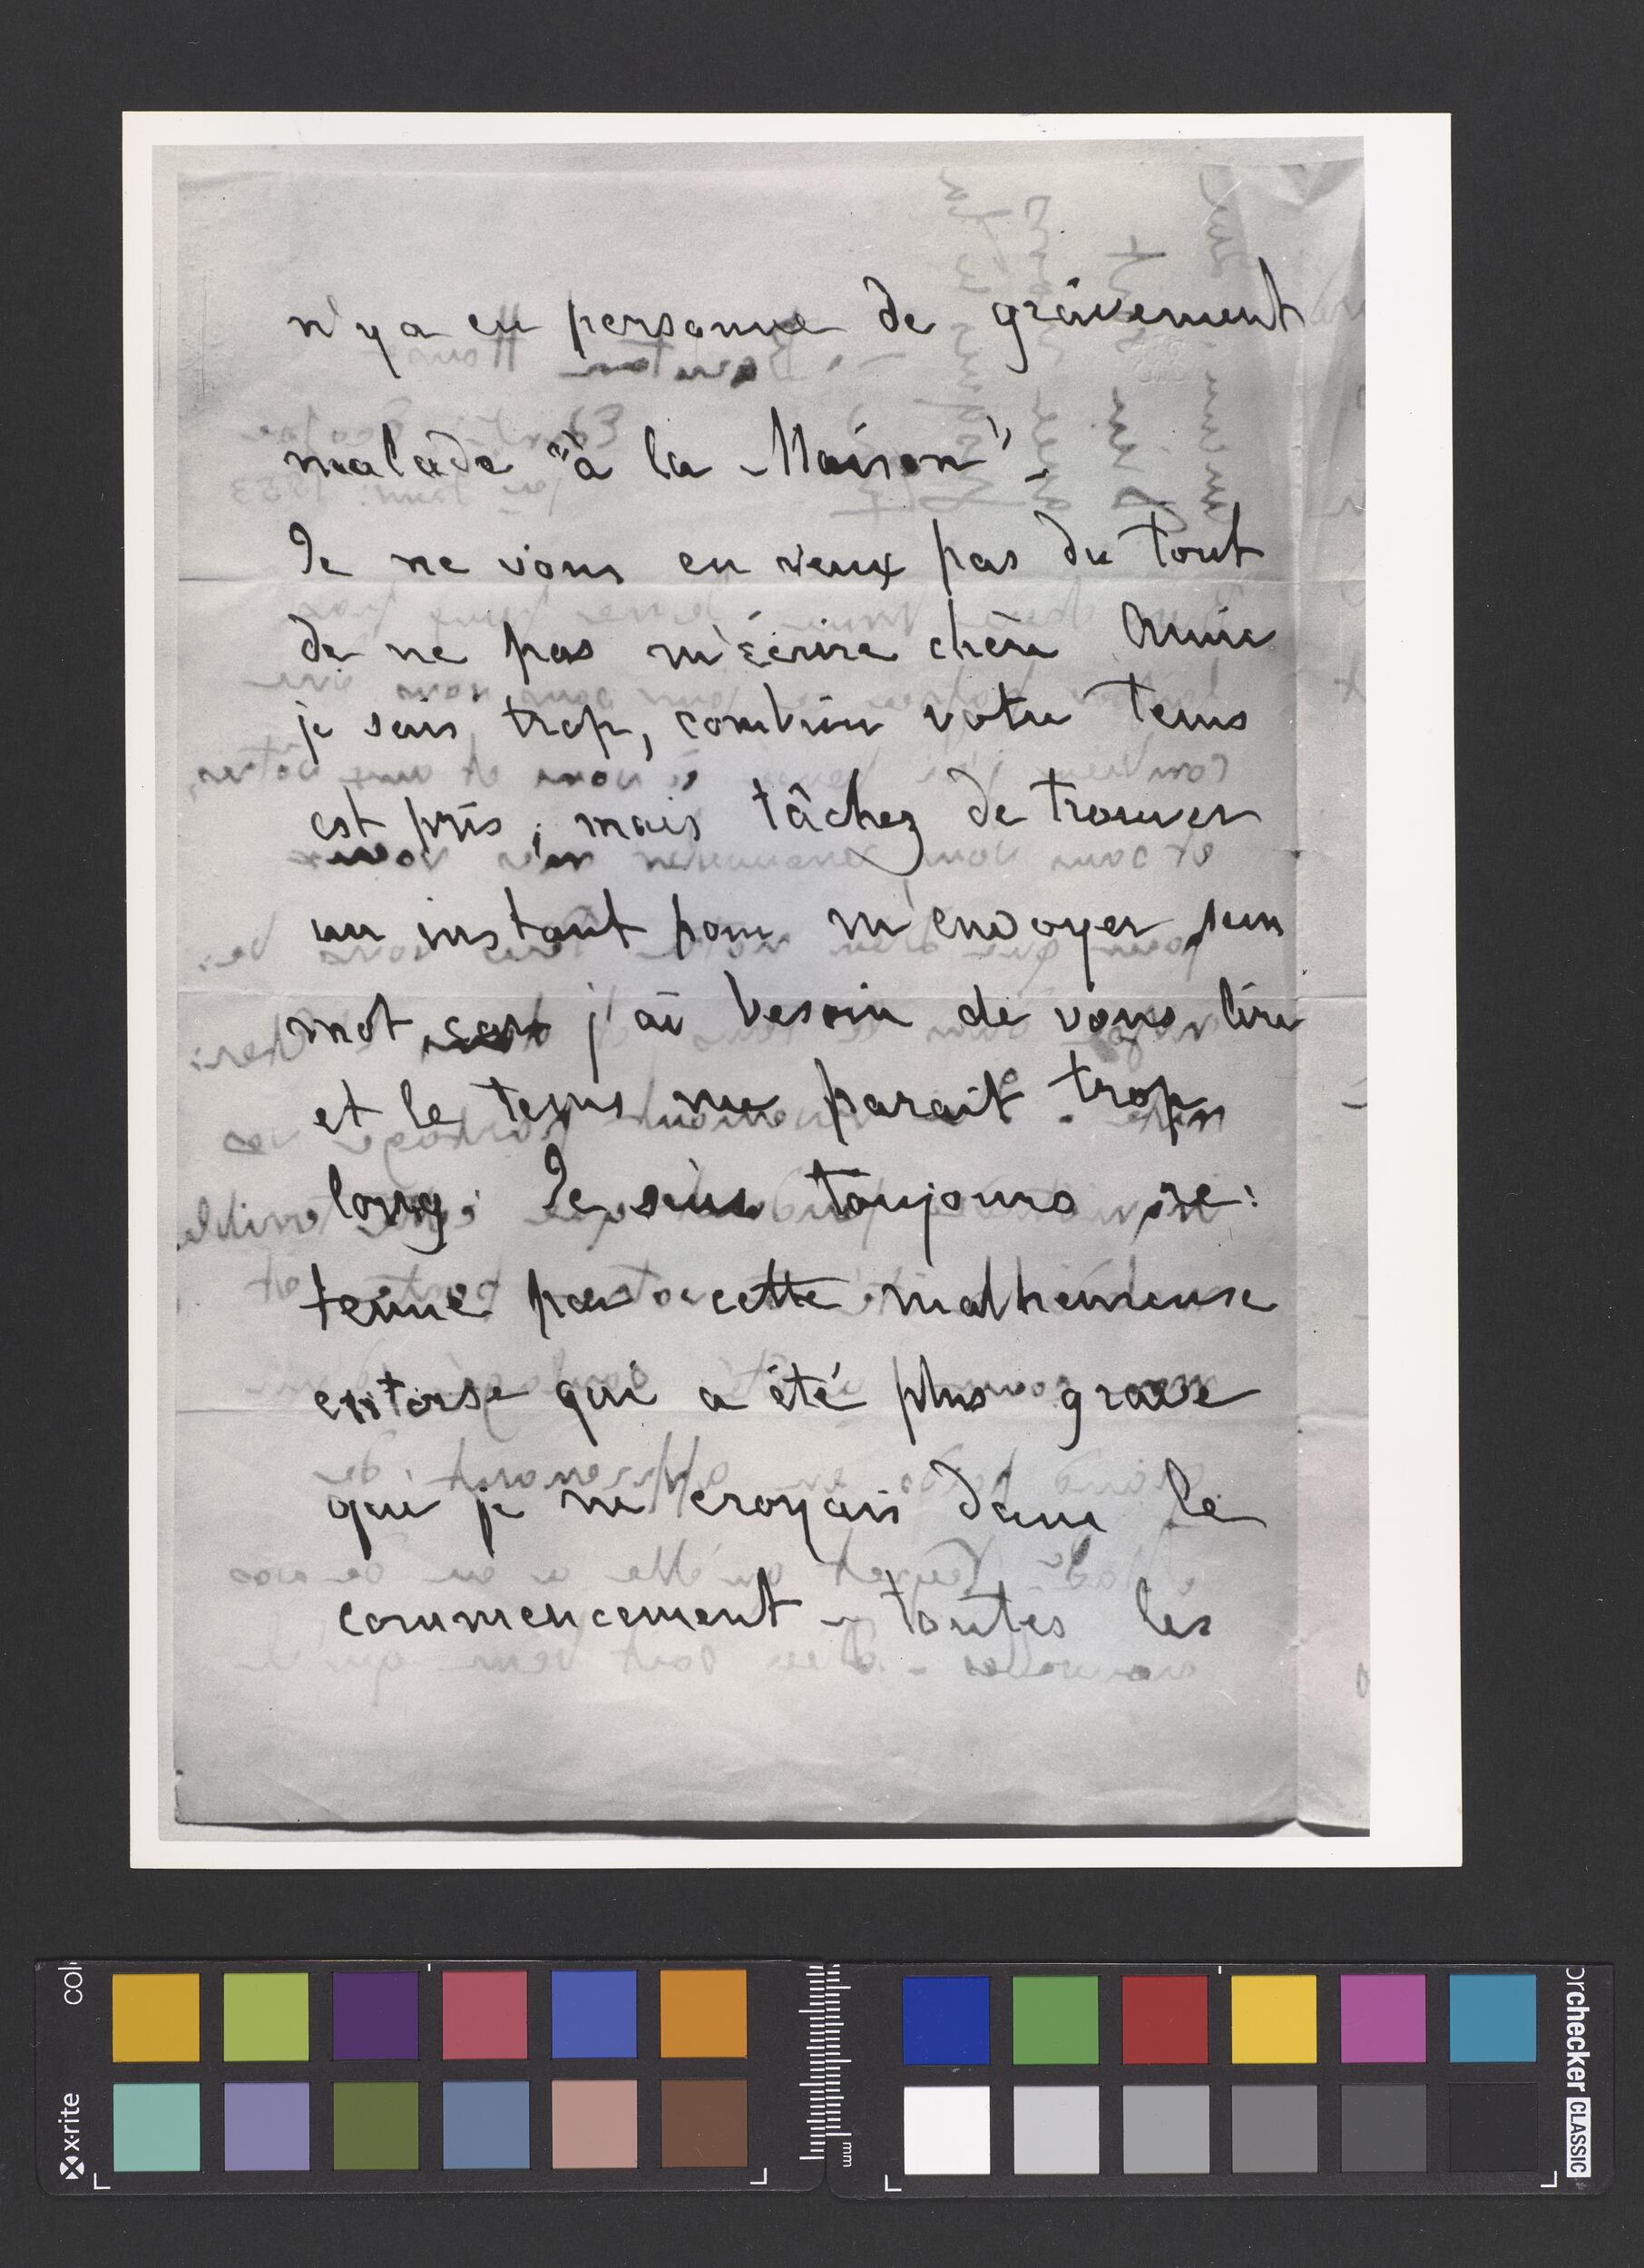 n'y a eu personne de gravement
malade "à la Maison".
Je ne vous en veux pas du tout
de ne pas m'écrire chère Amie
je sais trop, combien votre tems
est pris; mais tâchez de trouver
un instant pour m'envoyer un
mot car j'ai besoin de vous lire
et le tems me parait trop
long. Je suis toujours re:
tenue par cette malheureuse
entorse qui a été plus grave
que je ne croyais dans le
commencement - toutes les
x-rite
colorchecker CLASSIC
mm